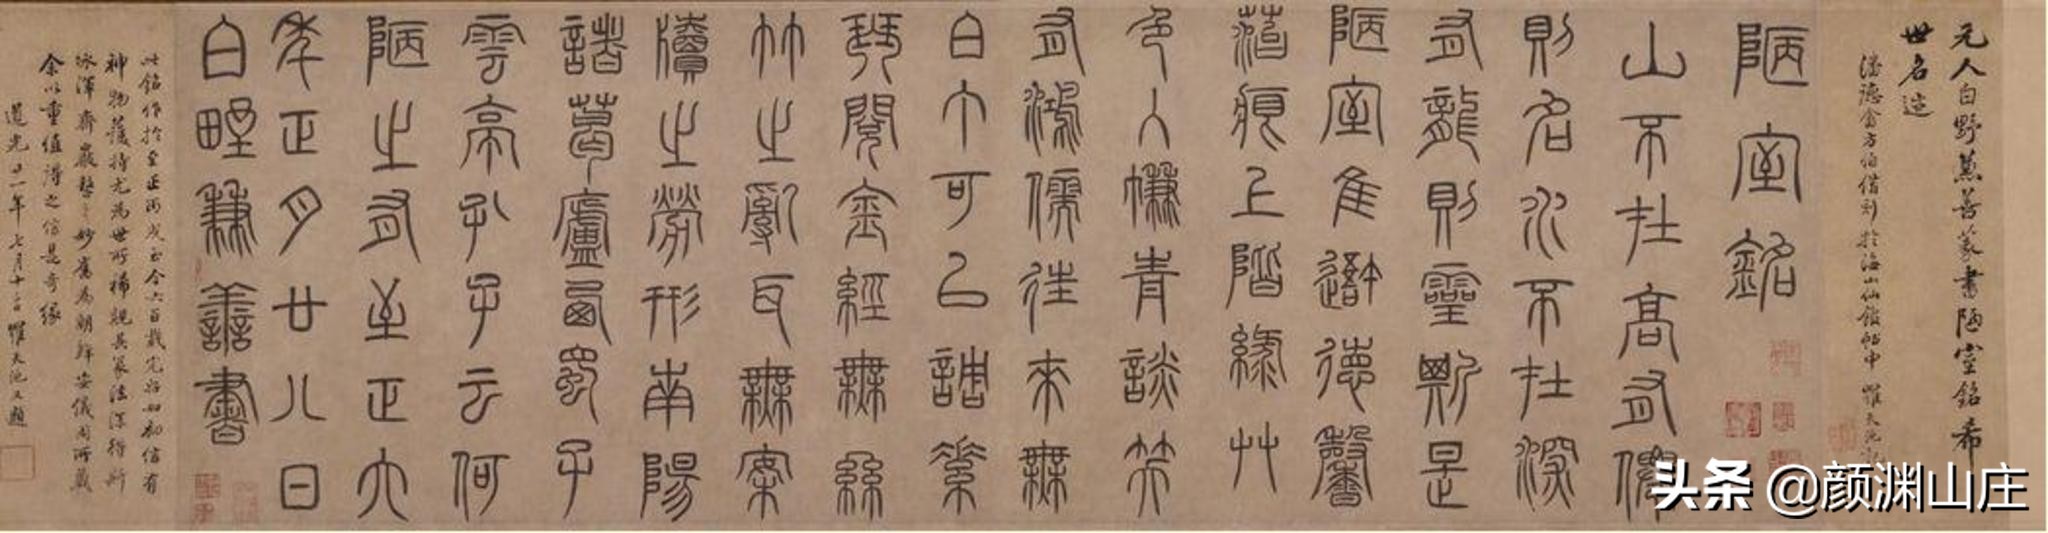 元人白野兼善篆書陋室銘希
世名迹
潘德畬方伯借刻於海山仙館帖中 羅天池
陋室銘
山不在高有僊
則名水不在深
有龍則靈斯是
陋室隹吾德馨
苔痕上階綠艸
色入簾青談笑
有鴻儒往來無
白丁可以調素
琴閱金經無絲
竹之亂耳無案
牘之勞形南陽
諸葛廬西蜀子
雲亭孔子云何
陋之有至正六
年正月廿八日
白野兼善書
此銘作於至正丙戌至今六百載完好如初信有
神物護持尤為世所稀覯其篆法深得斯
冰渾齊嚴整之妙舊為朝鮮安儀周所藏
余以重值得之信是奇緣
道光廿一年七月十 羅天池又題
头条 @颜渊山庄